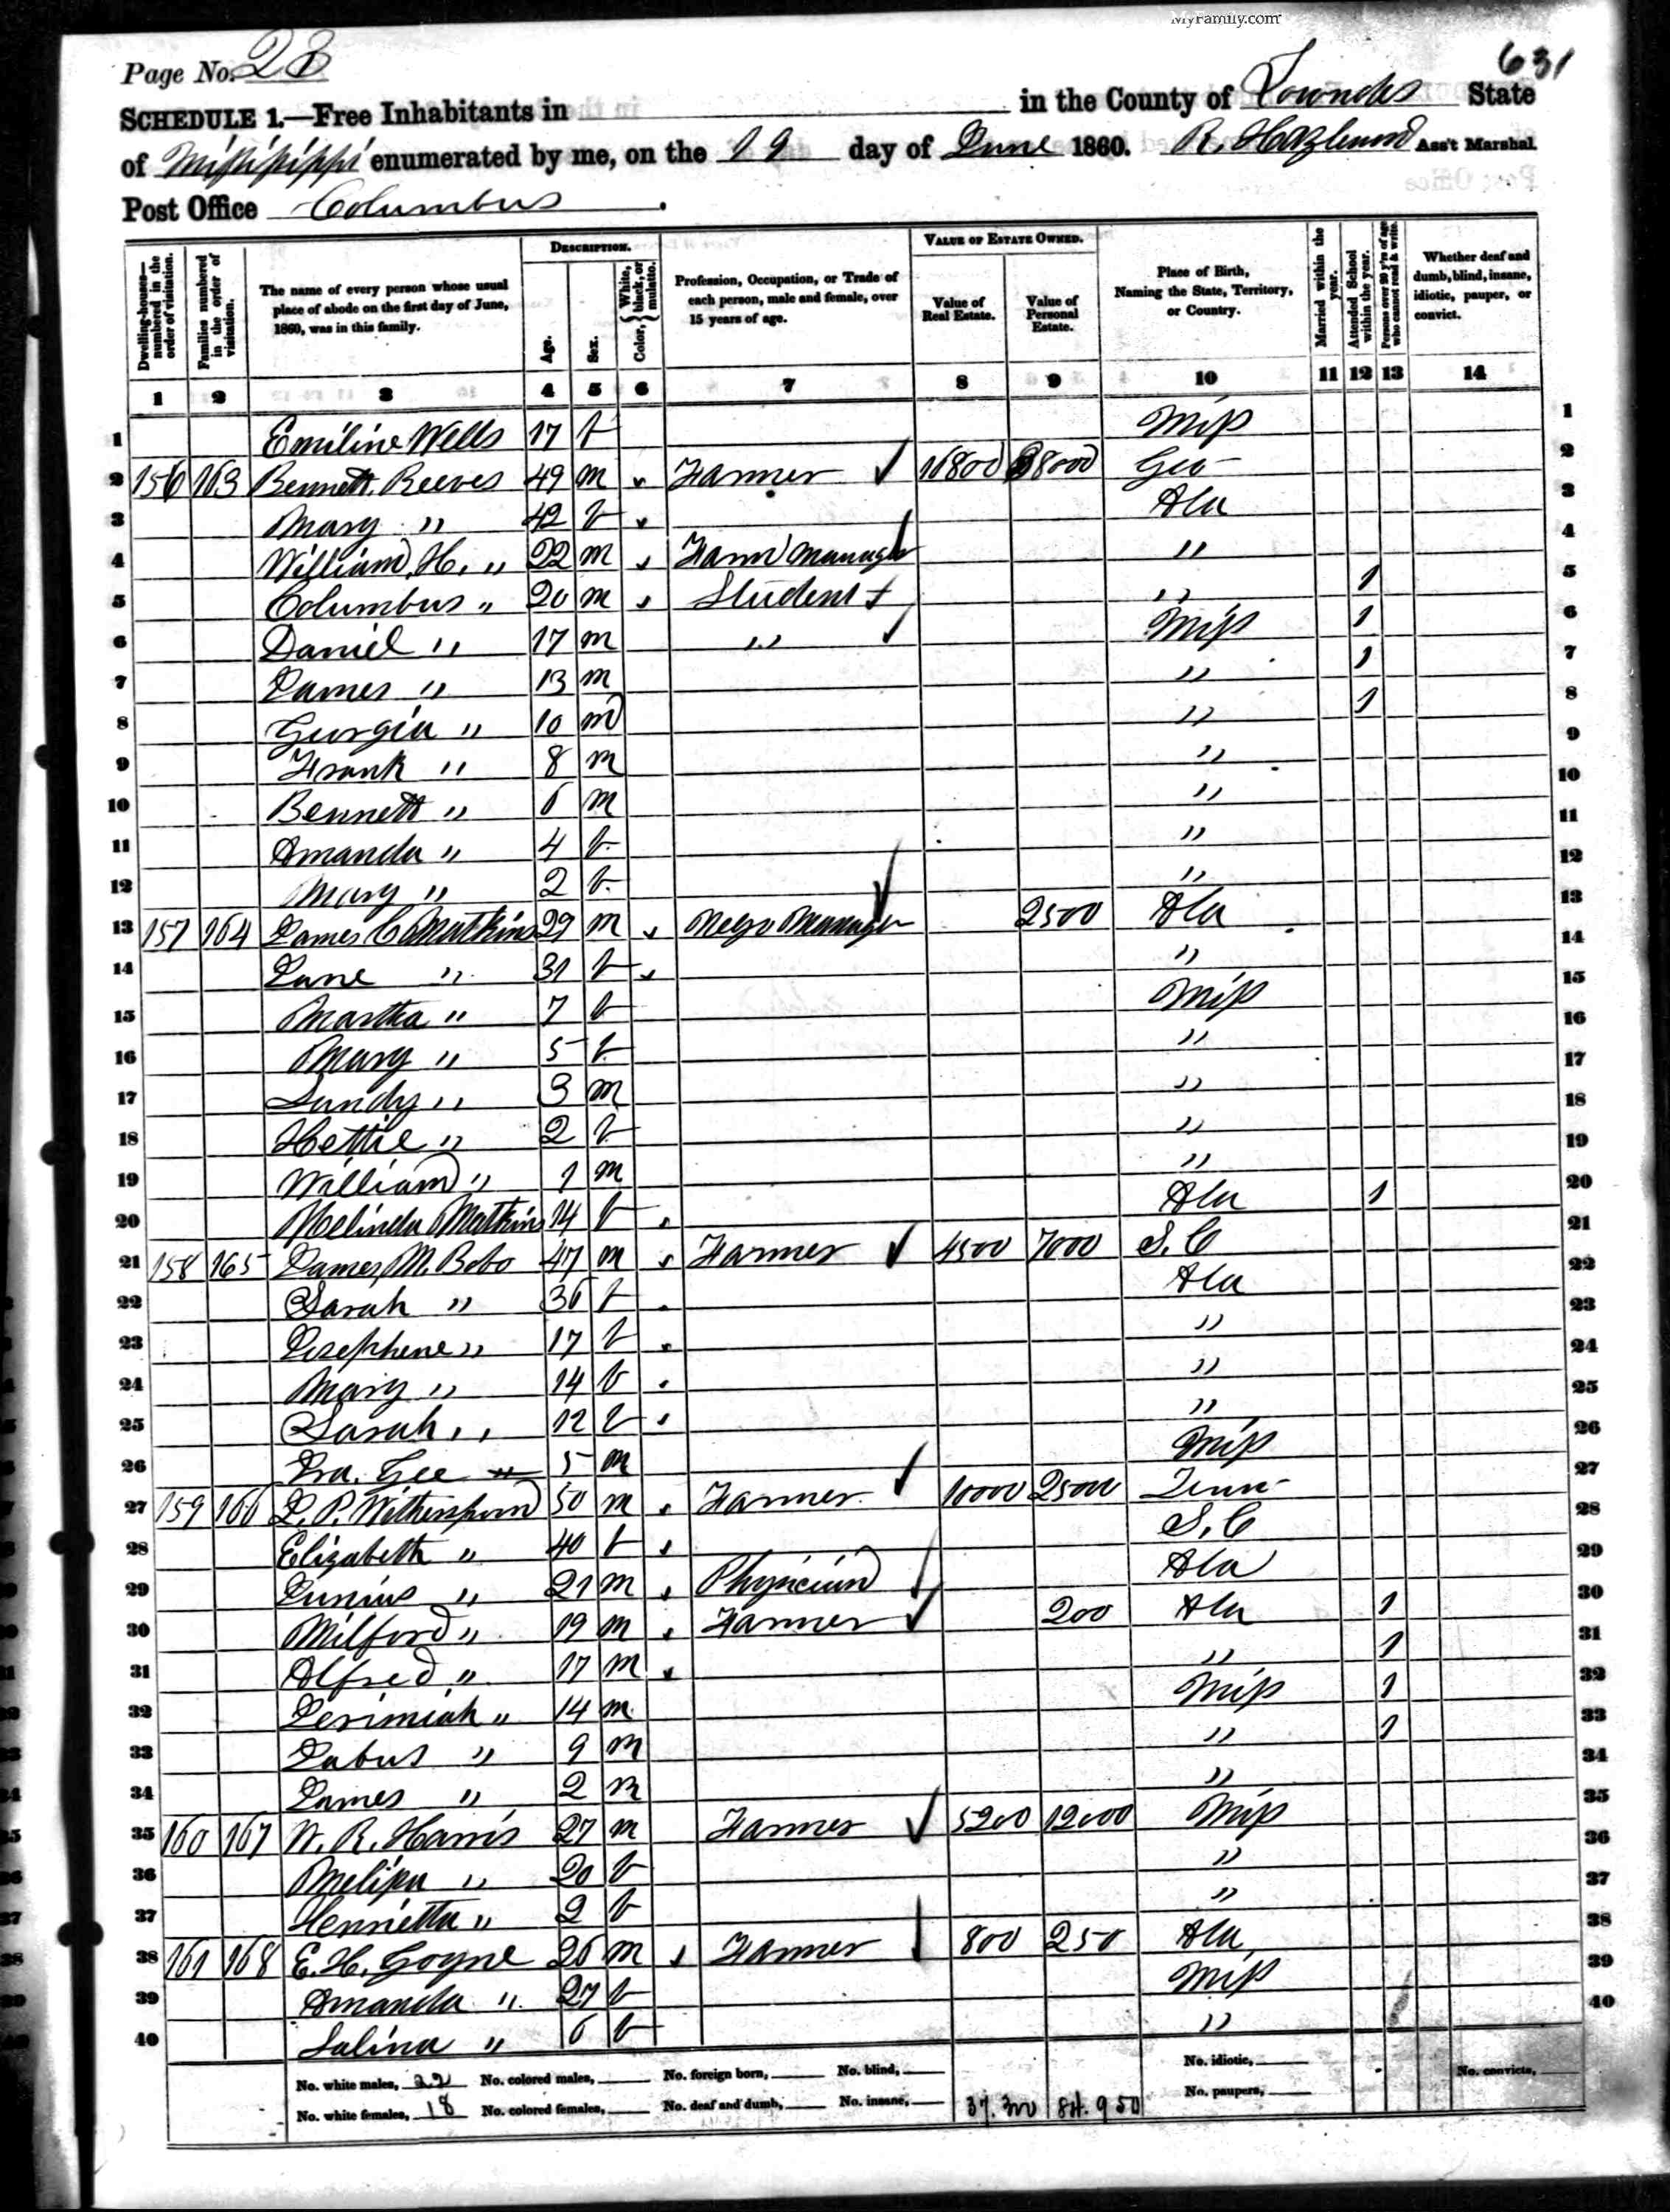 MyFamily.com
Page No. 23
631
SCHEDULE 1.—Free Inhabitants in in the County of Lowndes State
of Mississippi enumerated by me, on the 19 day of June 1860. R. Hazlewood Ass't Marshal.
Post Office Columbus.
DESCRIPTION. VALUE OF ESTATE OWNED.
Dwelling-houses—numbered in the order of visitation. Families numbered in the order of visitation. The name of every person whose usual place of abode on the first day of June, 1860, was in this family. Age. Sex. Color, { White, black, or mulatto. Profession, Occupation, or Trade of each person, male and female, over 15 years of age. Value of Real Estate. Value of Personal Estate. Place of Birth, Naming the State, Territory, or Country. Married within the year. Attended School within the year. Persons over 20 y'rs of age who cannot read & write. Whether deaf and dumb, blind, insane, idiotic, pauper, or convict.
1 2 3 4 5 6 7 8 9 10 11 12 13 14
1 Emiline Wells 17 f Miss 1
2 156 163 Bennett Reeves 49 m Farmer 16800 8000 Geo 2
3 Mary " 42 f Ala 3
4 William H. " 22 m Farm Manager " 4
5 Columbus " 20 m Student " 1 5
6 Daniel " 17 m " Miss 1 6
7 James " 13 m " 1 7
8 Georgia " 10 m " 1 8
9 Frank " 8 m " 9
10 Bennett " 6 m " 10
11 Amanda " 4 f " 11
12 Mary " 2 f " 12
13 157 164 James C Matkins 29 m Negro Manager 2500 Ala 13
14 Jane " 31 f " 14
15 Martha " 7 f Miss 15
16 Mary " 5 f " 16
17 Sandy " 3 m " 17
18 Hettie " 2 f " 18
19 William " 1 m " 19
20 Melinda Matkins 14 f Ala 1 20
21 158 165 James M. Bobo 47 m Farmer 4500 7000 S. C 21
22 Sarah " 36 f Ala 22
23 Josephene " 17 f " 23
24 Mary " 14 f " 24
25 Sarah " 12 f " 25
26 Ira. Gee " 5 m Miss 26
27 159 166 J. P. Witherspoon 50 m Farmer 10000 25000 Tenn 27
28 Elizabeth " 40 f S. C 28
29 Junius " 21 m Physician Ala 29
30 Milford " 19 m Farmer 200 Ala 1 30
31 Alfred " 17 m " 1 31
32 Jerimiah " 14 m Miss 1 32
33 Jabus " 9 m " 1 33
34 James " 2 m " 34
35 160 167 W. R. Harris 27 m Farmer 5200 12000 Miss 35
36 Melissa " 20 f " 36
37 Henrietta " 2 f " 37
38 161 168 E. H. Goyne 26 m Farmer 800 250 Ala 38
39 Amanda " 27 f Miss 39
40 Salina " 6 f " 40
No. white males, 22 No. colored males, No. foreign born, No. blind, No. idiotic, No. convicts,
No. white females, 18 No. colored females, No. deaf and dumb, No. insane, 37.300 84.950 No. paupers,